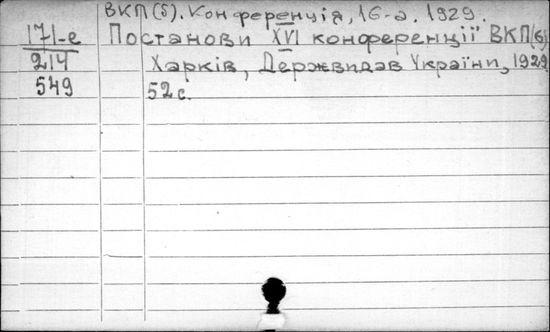 ВКП(б). Конференція, 16-а. 1929.
171-е Постанови XVI конференції ВКП(б)
214 Харків, Держвидав України, 1929
549 52 с.